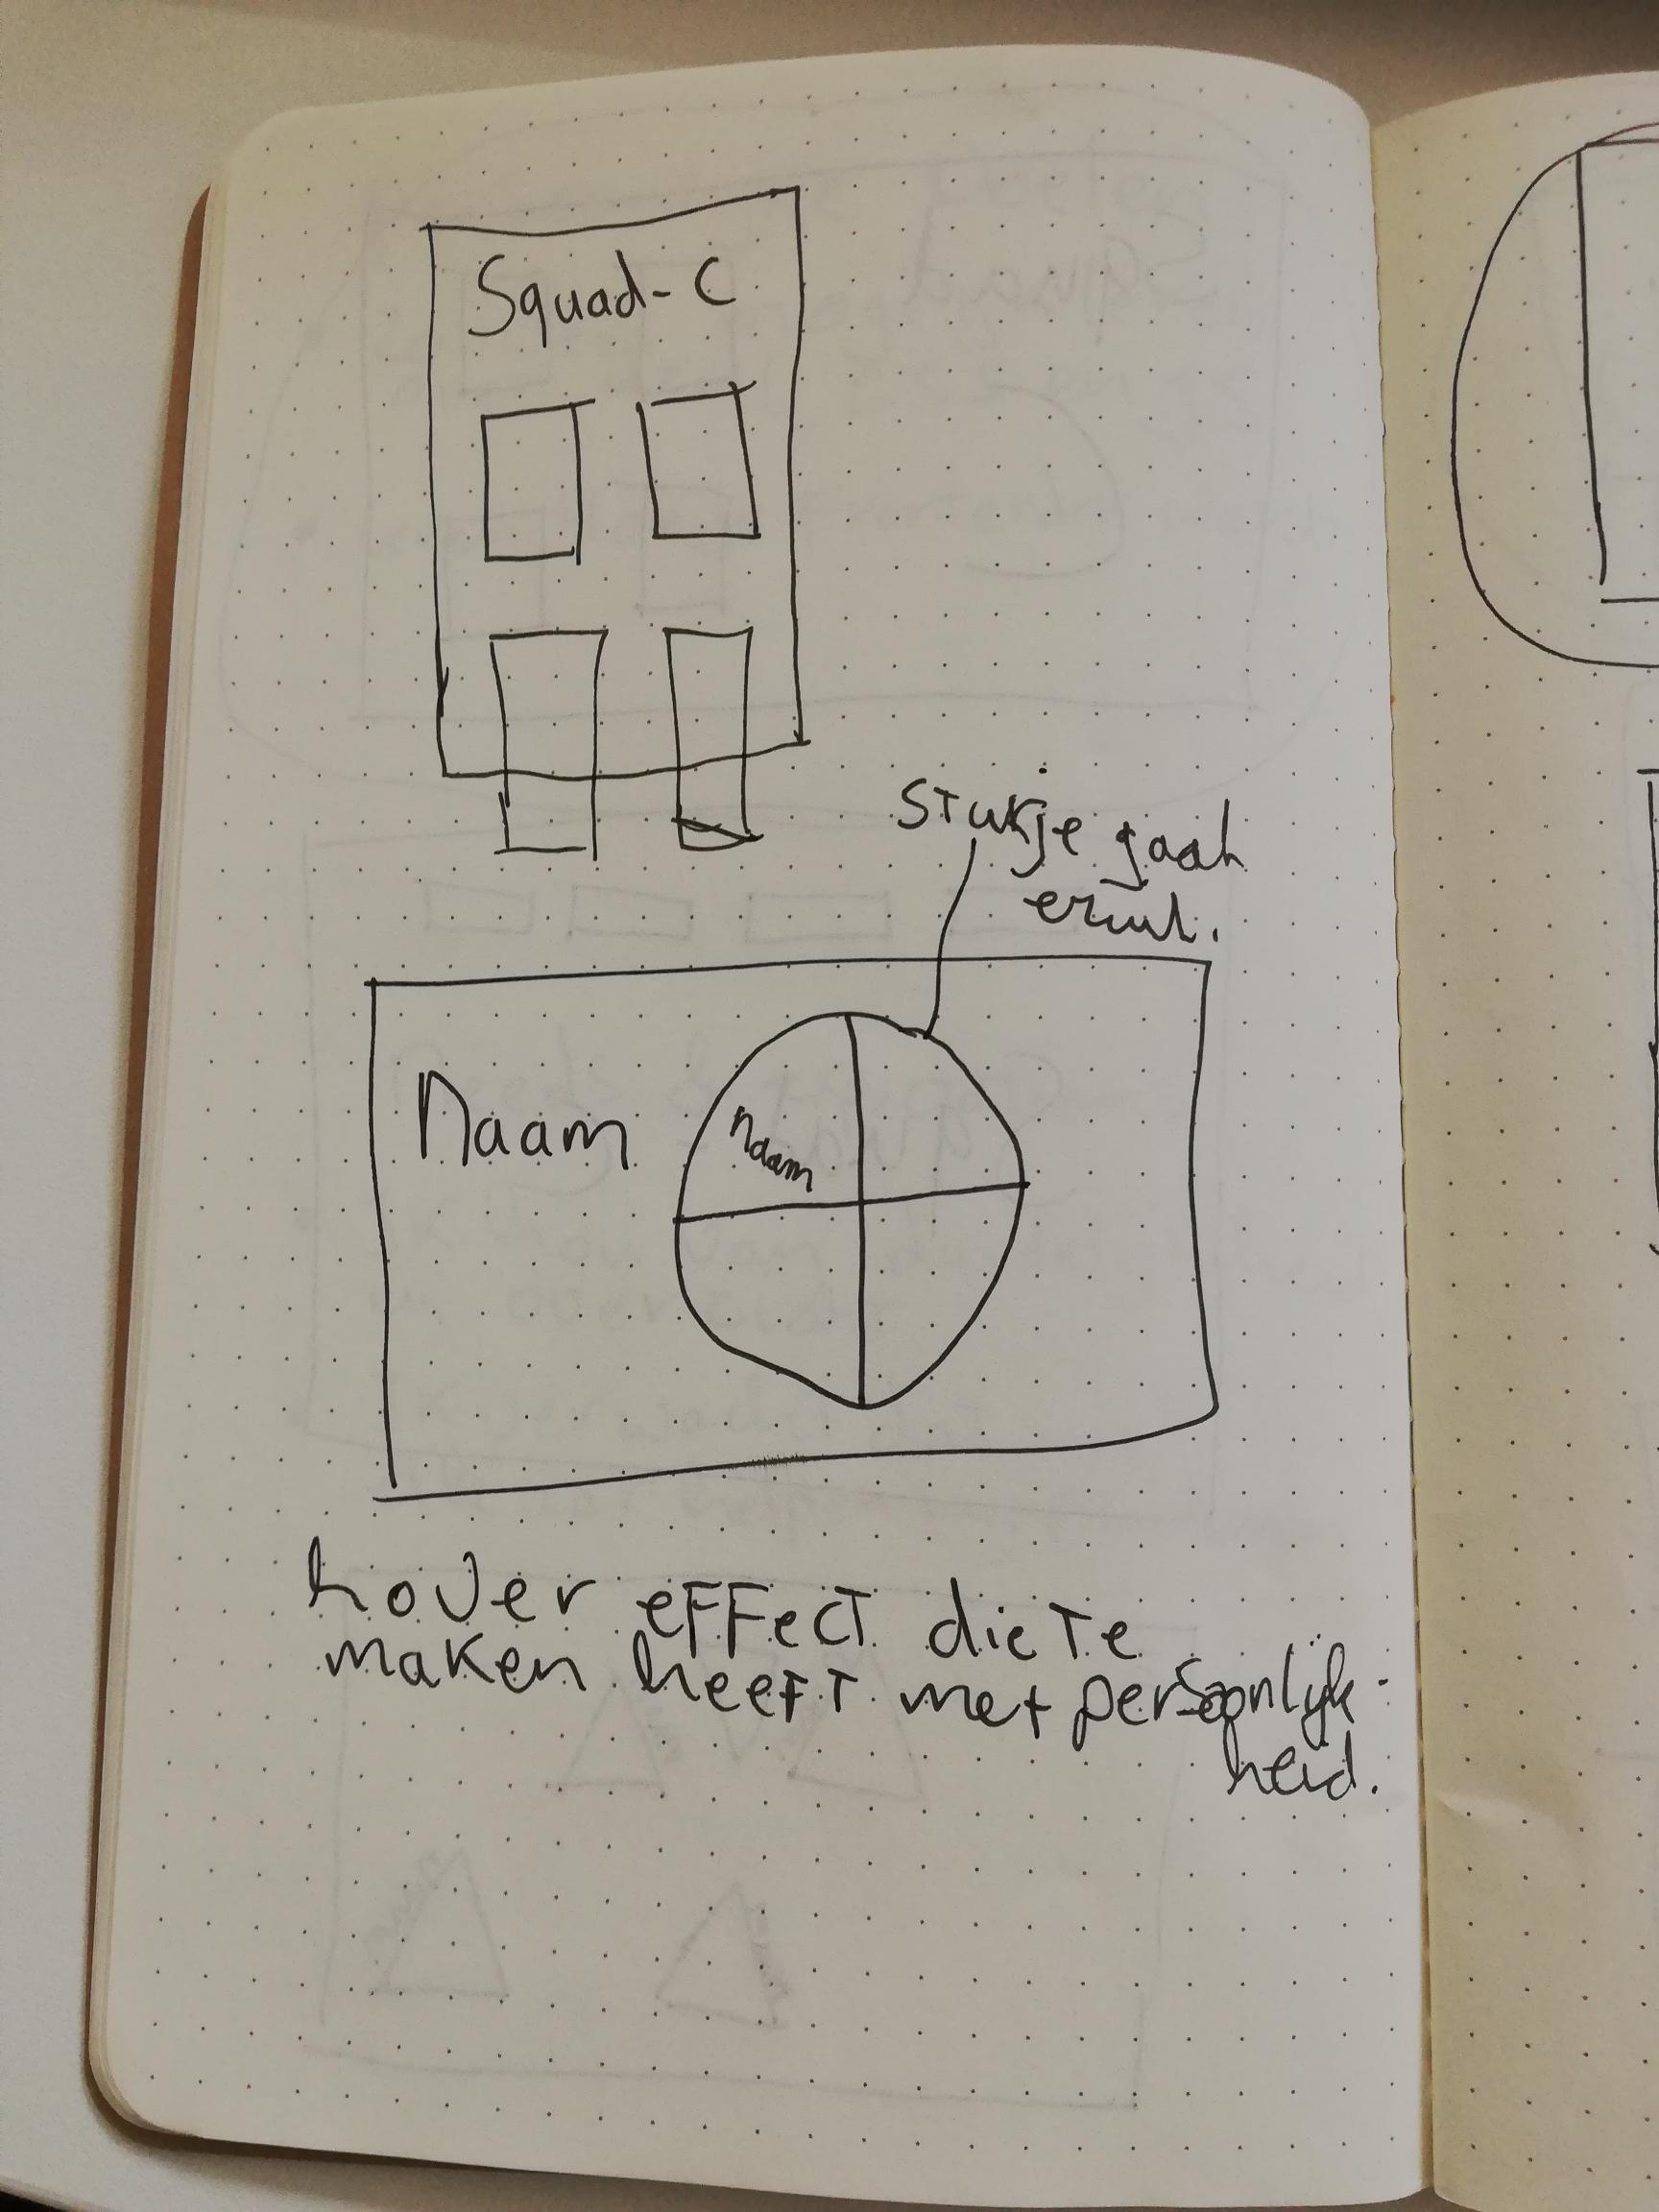 Squad-C
Stukje gaat
eruit.
Naam
naam
hover effect die te
maken heeft met persoonlijk-
heid.